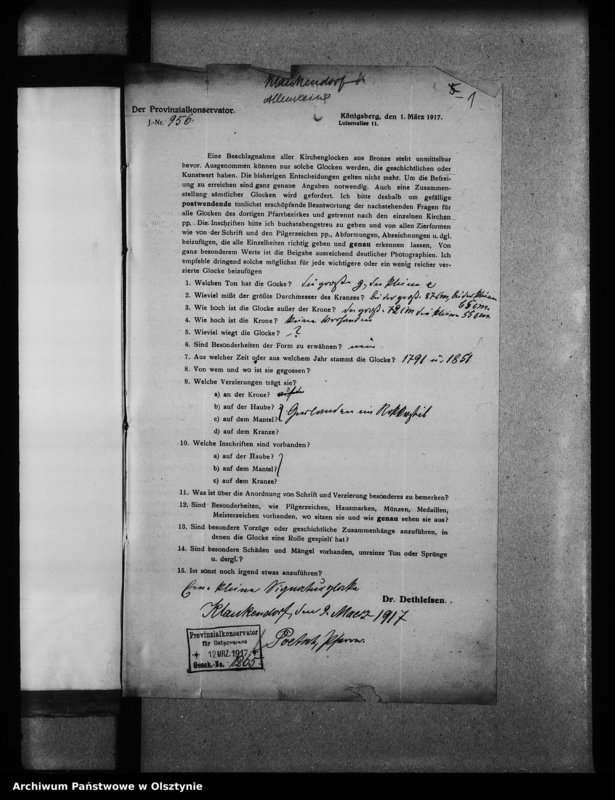 Klaukendorf
Allenstein
5 1
Der Provinzialkonservator.
J.-Nr. 956.
Königsberg, den 1. März 1917.
Luisenallee 11.
Eine Beschlagnahme aller Kirchenglocken aus Bronze steht unmittelbar
bevor. Ausgenommen können nur solche Glocken werden, die geschichtlichen oder
Kunstwert haben. Die bisherigen Entscheidungen gelten nicht mehr. Um die Befrei-
ung zu erreichen sind ganz genaue Angaben notwendig. Auch eine Zusammen-
stellung sämtlicher Glocken wird gefordert. Ich bitte deshalb um gefällige
postwendende tunlichst erschöpfende Beantwortung der nachstehenden Fragen für
alle Glocken des dortigen Pfarrbezirkes und getrennt nach den einzelnen Kirchen
pp. Die Inschriften bitte ich buchstabengetreu zu geben und von allen Zierformen
wie von der Schrift und den Pilgerzeichen pp., Abformungen, Abzeichnungen u. dgl.
beizufügen, die alle Einzelheiten richtig geben und genau erkennen lassen. Von
ganz besonderem Werte ist die Beigabe ausreichend deutlicher Photographien. Ich
empfehle dringend solche möglichst für jede wichtigere oder ein wenig reicher ver-
zierte Glocke beizufügen
1. Welchen Ton hat die Gocke? die große g, die kleine e
2. Wieviel mißt der größte Durchmesser des Kranzes? bei der groß. 87 cm, bei der kleinen 66 cm.
3. Wie hoch ist die Glocke außer der Krone? die groß. 72 cm die kleine 55 cm.
4. Wie hoch ist die Krone? keine vorhanden
5. Wieviel wiegt die Glocke? ?
6. Sind Besonderheiten der Form zu erwähnen? nein.
7. Aus welcher Zeit oder aus welchem Jahr stammt die Glocke? 1791 u. 1851
8. Von wem und wo ist sie gegossen?
9. Welche Verzierungen trägt sie?
a) an der Krone?
b) auf der Haube? Guirlanden im
c) auf dem Mantel?
d) auf dem Kranze?
10. Welche Inschriften sind vorhanden?
a) auf der Haube?
b) auf dem Mantel?
c) auf dem Kranze?
11. Was ist über die Anordnung von Schrift und Verzierung besonderes zu bemerken?
12. Sind Besonderheiten, wie Pilgerzeichen, Hausmarken, Münzen, Medaillen,
Meisterzeichen vorhanden, wo sitzen sie und wie genau sehen sie aus?
13. Sind besondere Vorzüge oder geschichtliche Zusammenhänge anzuführen, in
denen die Glocke eine Rolle gespielt hat?
14. Sind besondere Schäden und Mängel vorhanden, unreiner Ton oder Sprünge
u. dergl.?
15. Ist sonst noch irgend etwas anzuführen?
Eine kleine Signaturglocke
Dr. Dethlefsen.
Klaukendorf, den 9. Maerz 1917
Pfarrer.
Provinzialkonservator
für Ostpreussen
12 MRZ. 1917
Gesch.-No. 1265
Archiwum Państwowe w Olsztynie